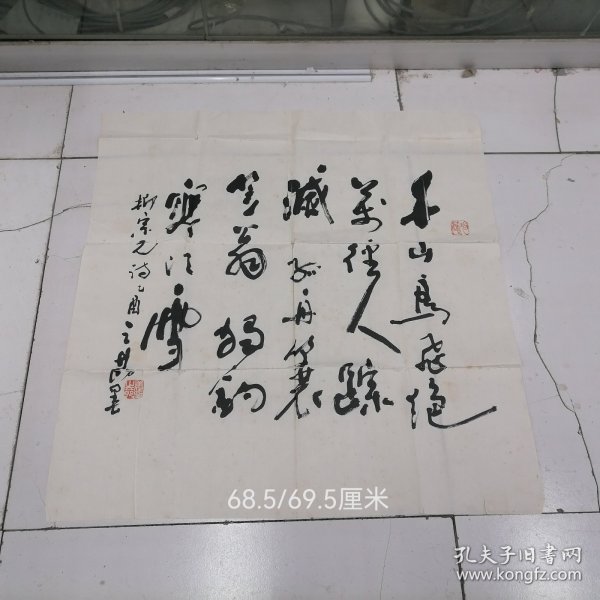 千山鳥飛绝
萬徑人踪
滅孤舟簑
笠翁獨釣
寒江雪
柳宗元诗乙酉
68.5/69.5厘米
孔夫子旧书网
www.kongfz.com